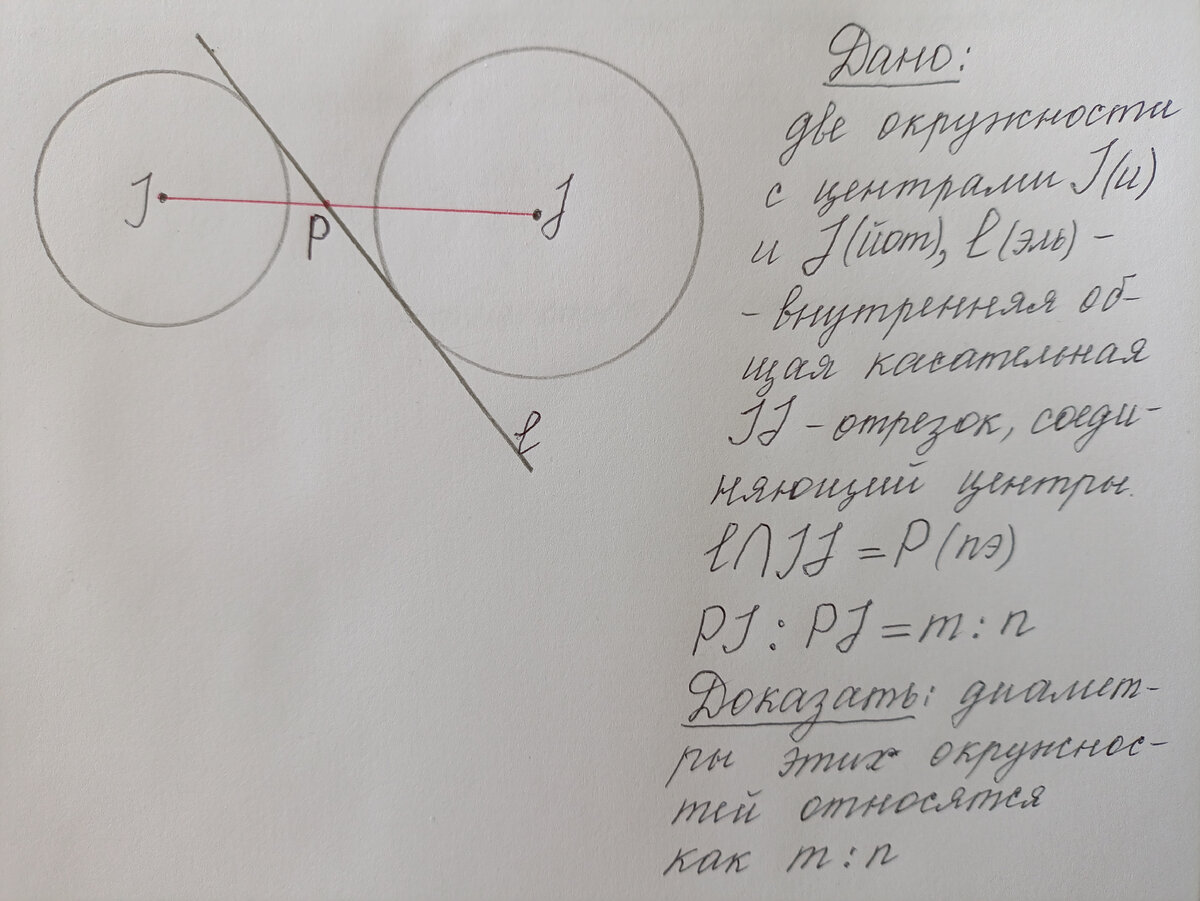 J
J
P
l
Дано:
две окружности
с центрами J(и)
и J(йот), l(эль) -
- внутренняя об-
щая касательная
JJ - отрезок, соеди-
няющий центры.
l∩JJ = P(пэ)
PJ : PJ = m : n
Доказать: диамет-
ры этих окружнос-
тей относятся
как m : n